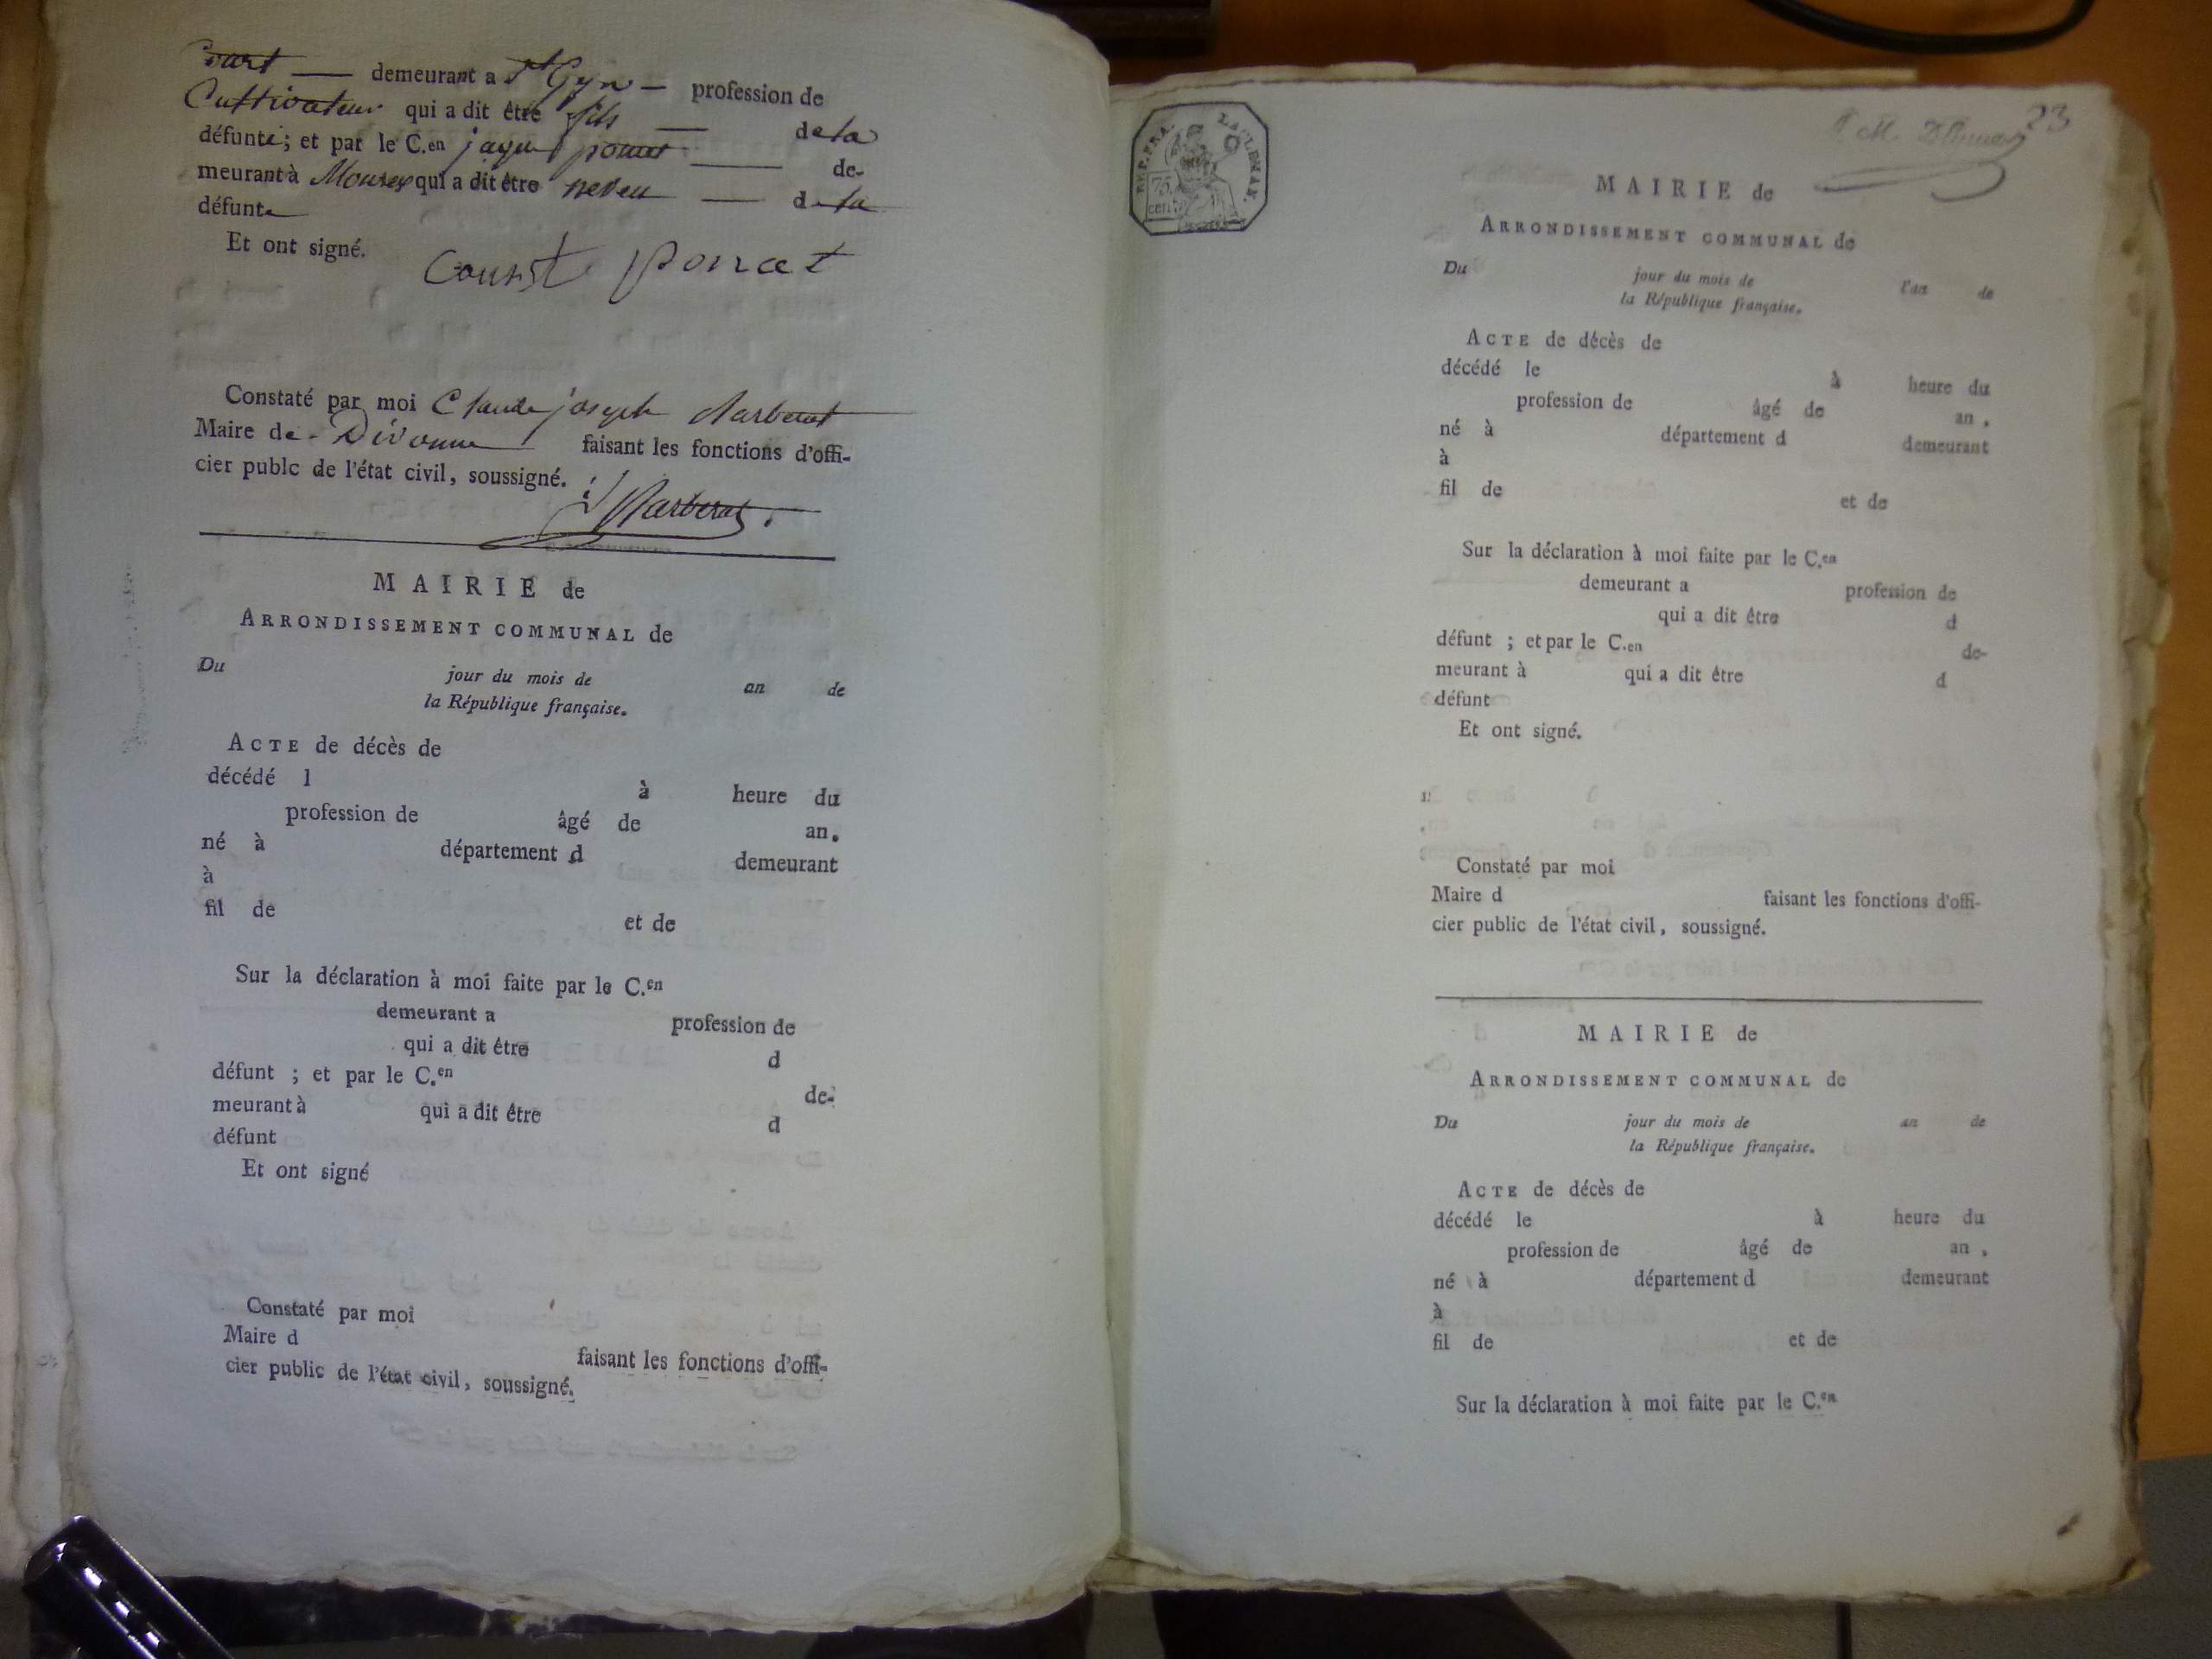 Court — demeurant a St Gyn — profession de
Cultivateur qui a dit être fils — de la
défunte; et par le C.en jaque poncet — de-
meurant à Mourex qui a dit être neveu — de la
défunte
Et ont signé.
Court poncet
Constaté par moi Claude joseph Marberat
Maire de Divonne faisant les fonctions d'offi-
cier publc de l'état civil, soussigné.
Marberat
MAIRIE de
ARRONDISSEMENT COMMUNAL de
Du jour du mois de an de
la République française.
ACTE de décès de
décédé l à heure du
profession de âgé de an.
né à département d demeurant
à
fil de et de
Sur la déclaration à moi faite par le C.en
demeurant a profession de
qui a dit être d
défunt ; et par le C.en de-
meurant à qui a dit être d
défunt
Et ont signé
Constaté par moi
Maire d faisant les fonctions d'offi-
cier public de l'état civil, soussigné.
23
REP. FRA.
75.
cent.
MAIRIE de
ARRONDISSEMENT COMMUNAL de
Du jour du mois de l'an de
la République française.
ACTE de décès de
décédé le à heure du
profession de âgé de an.
né à département d demeurant
à
fil de et de
Sur la déclaration à moi faite par le C.en
demeurant a profession de
qui a dit être d
défunt ; et par le C.en de-
meurant à qui a dit être d
défunt
Et ont signé.
Constaté par moi
Maire d faisant les fonctions d'offi-
cier public de l'état civil, soussigné.
MAIRIE de
ARRONDISSEMENT COMMUNAL de
Du jour du mois de an de
la République française.
ACTE de décès de
décédé le à heure du
profession de âgé de an.
né à département d demeurant
à
fil de et de
Sur la déclaration à moi faite par le C.en